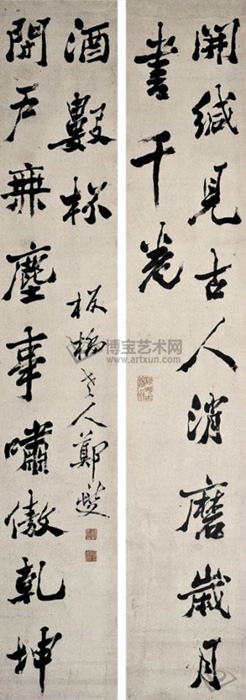 開緘見古人消磨歲月
書千卷
開戶無塵事嘯傲乾坤
酒數杯
板橋老人鄭燮
博宝艺术网
www.artxun.com